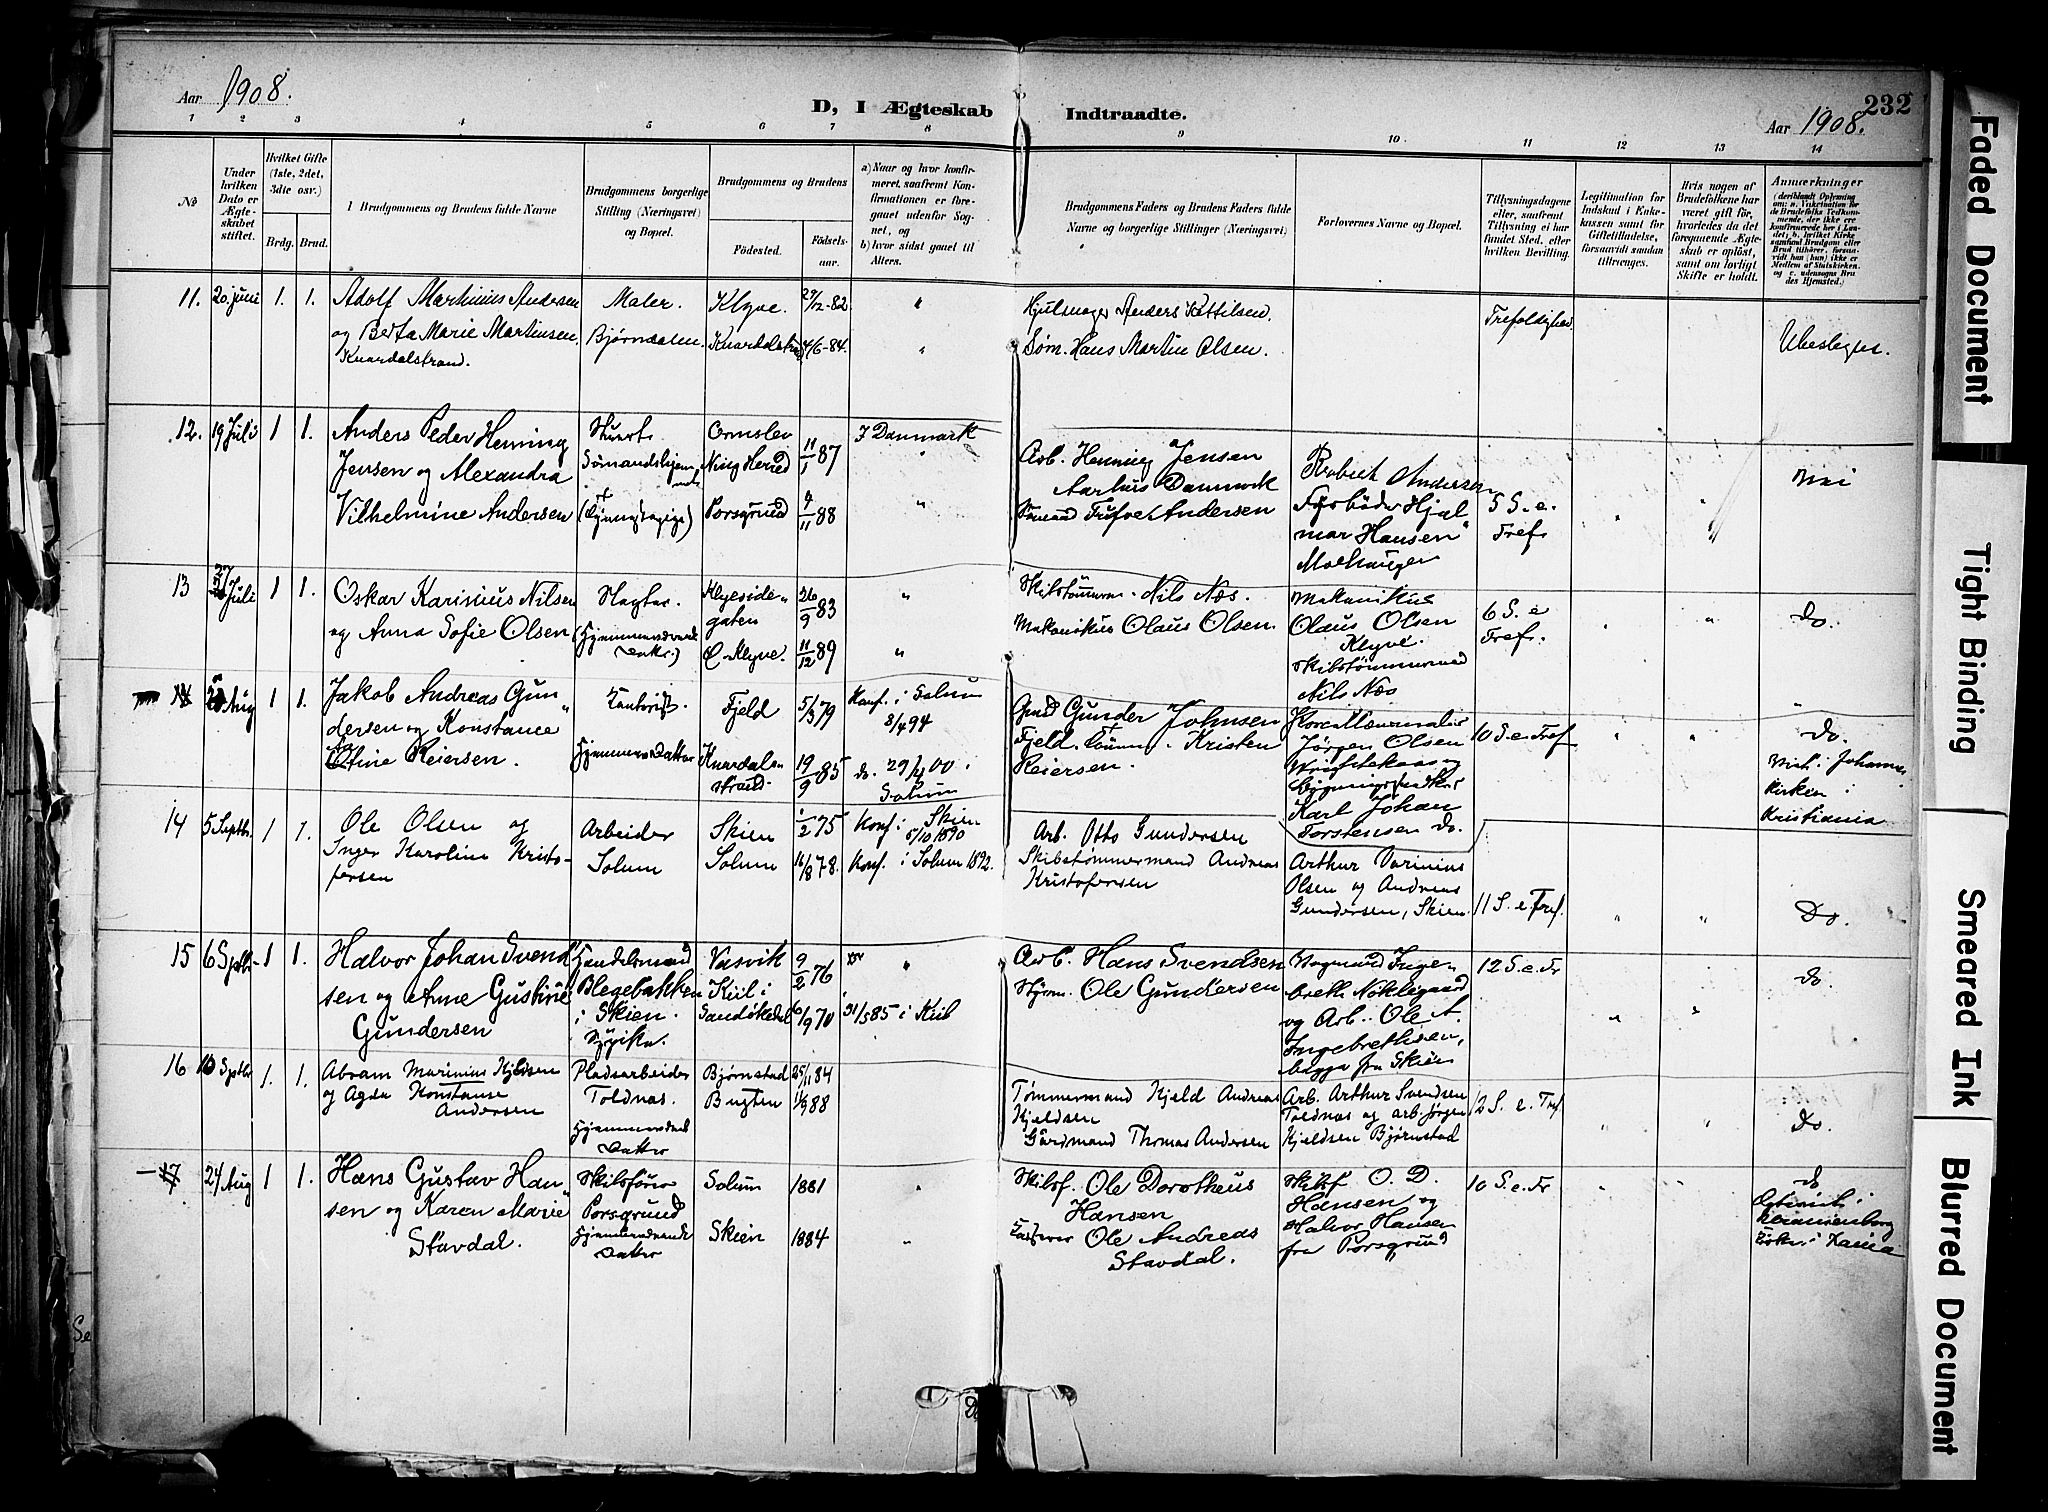 Aar 1908.
D, I Ægteskab Indtraadte.
Aar 1908.
232
1 2 3 4 5 6 7 8 9 10 11 12 13 14
No
Under hvilken Dato er Ægteskabet stiftet.
Hvilket Gifte (1ste, 2det, 3die osv.)
Brdg. Brud.
1 Brudgommens og Brudens fulde Navne
Brudgommens borgerlige Stilling (Næringsvei) og Bopæl.
Brudgommens og Brudens
Fødested.
Fødselsaar.
a) Naar og hvor konfirmeret, saafremt Konfirmationen er foregaaet udenfor Sognet, og
b) hvor sidst gaaet til Alters.
Brudgommens Faders og Brudens Faders fulde Navne og borgerlige Stillinger (Næringsvei)
Forlovernes Navne og Bopæl.
Tillysningsdagene eller, saafremt Tillysning ei har fundet Sted, efter hvilken Bevilling.
Legitimation for Indskud i Enkekassen samt for Giftetilladelse, forsaavidt saadan tiltrænges.
Hvis nogen af Brudefolkene har været gift før, hvorledes da det foregaaende Ægteskab er opløst, samt om lovligt Skifte er holdt.
Anmærkninger
11. 20. juni 1. 1. Adolf Martinius Andersen Maler. Klyve. 29/12-82 "
og Berta Marie Martinsen, Bjørndalen. Knardalstrand 4/6-84. "
Knardalstrand.
Hjulmager Anders Kittilsen. Trefoldighed.
Søm. Hans Martin Olsen. Ubeslegtet.
12. 19 Juli 1 1. Anders Peder Henning Stuert. Ormslev 11/1 87 I Danmark
Jensen og Alexandra Sømandshjem Ning Herred "
Vilhelmine Andersen Porsgrund 9/11 88 "
Arb. Henning Jensen Robert Andersen
Aarhus Danmark Fyrbøder Hjalmar Hansen 5 S. e. Tref.
Sømand Andersen Moehaugen
Nei
13 Juli 1 1. Oskar Karinius Nilsen Slagter. Klyesidegaten 26/9 83 "
og Anna Sofie Olsen (Hjemmeværende Datter.) Ø. Klyve. 11/12 89 "
Skibstømmerm. Nils Næs. Mekanikus Olaus Olsen Klyve. 6 S. e Tref.
Mekanikus Olaus Olsen. Skibstømmermand Nils Næs
Do.
Aug 1 1. Jakob Andreas Gundersen og Konstance Kontorist. Fjeld 5/3 79 Konf. i Solum 8/4 94
Otine Reiersen. Hjemmev. Datter Knardalstrand. 19/9 85 do. 29/4 00 i Solum
Gmd Gunder Johnsen Fjeld. Kristen Reiersen.
Jørgen Olsen
Karl Johan Torstensen do.
10 S. e. Tref
Do. Viet i Johannes Kirken i Kristiania
14 5 Septbr. 1 1. Ole Olsen og Arbeider Skien 1/2 75 Konf. i Skien 5/10 1890
Inger Karoline Kristofersen Solum Solum 16/8 78. Konf. i Solum 1892.
Arb. Otto Gundersen
Skibstømmermand Andreas Kristofersen
Arthur Varinius Olsen og Andreas Gundersen, Skien. 11 S. e. Tref.
Do.
15 6 Sptbr 1 1. Halvor Johan Svendsen og Anne Gustine Gundersen
Handelsmand Blegebakken i Skien. Sypike. Vasvik Kiil i Sandøkedal 9/2 76 6/9 70 31/5 85 i Kiil
Arb. Hans Svendsen
Styrm. Ole Gundersen
Vognmand Ingebreth Nøklegaard og Arb. Ole A. Ingebrethsen, begge fra Skien
12 S. e. Tr
do.
16 10 Sptbr 1. 1. Abram Marinius Kjeldsen Pladsarbeider Bjørnstad 25/11 84
og Agda Konstanse Andersen Toldnæs. Bugten 11/9 88
Hjemmeværende Datter
Tømmermand Kjeld Andreas Kjeldsen
Gårdmand Thomas Andersen
Arb. Arthur Svendsen Toldnæs og arb. Jørgen Kjeldsen Bjørnstad
12 S. e. Tref.
Do.
17 24 Aug 1 1. Hans Gustav Hansen og Karen Marie Stavdal. Skibsfører Porsgrund Solum 1881
Hjemmeværende Datter Skien 1884
Skibsf. Ole Dorotheus Hansen
Ole Andreas Stavdal.
Skibsf O. D. Hansen og Halvor Hansen fra Porsgrund
10 S. e. Tr
do
Faded Document
Tight Binding
Smeared Ink
Blurred Document